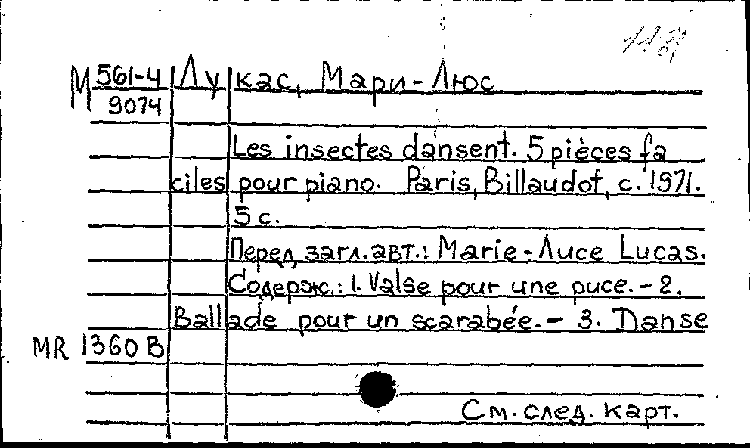 М 561-4 Лукас, Мари-Люс
9074
Les insectes dansent. 5 pièces fa
ciles pour piano. Paris, Billaudot, c. 1971.
5 с.
Перед загл. авт.: Marie-Луce Lucas.
Содерж.: 1. Valse pour une puce. - 2.
Ballade pour un scarabée. - 3. Danse
MR 1360 B
См. след. карт.